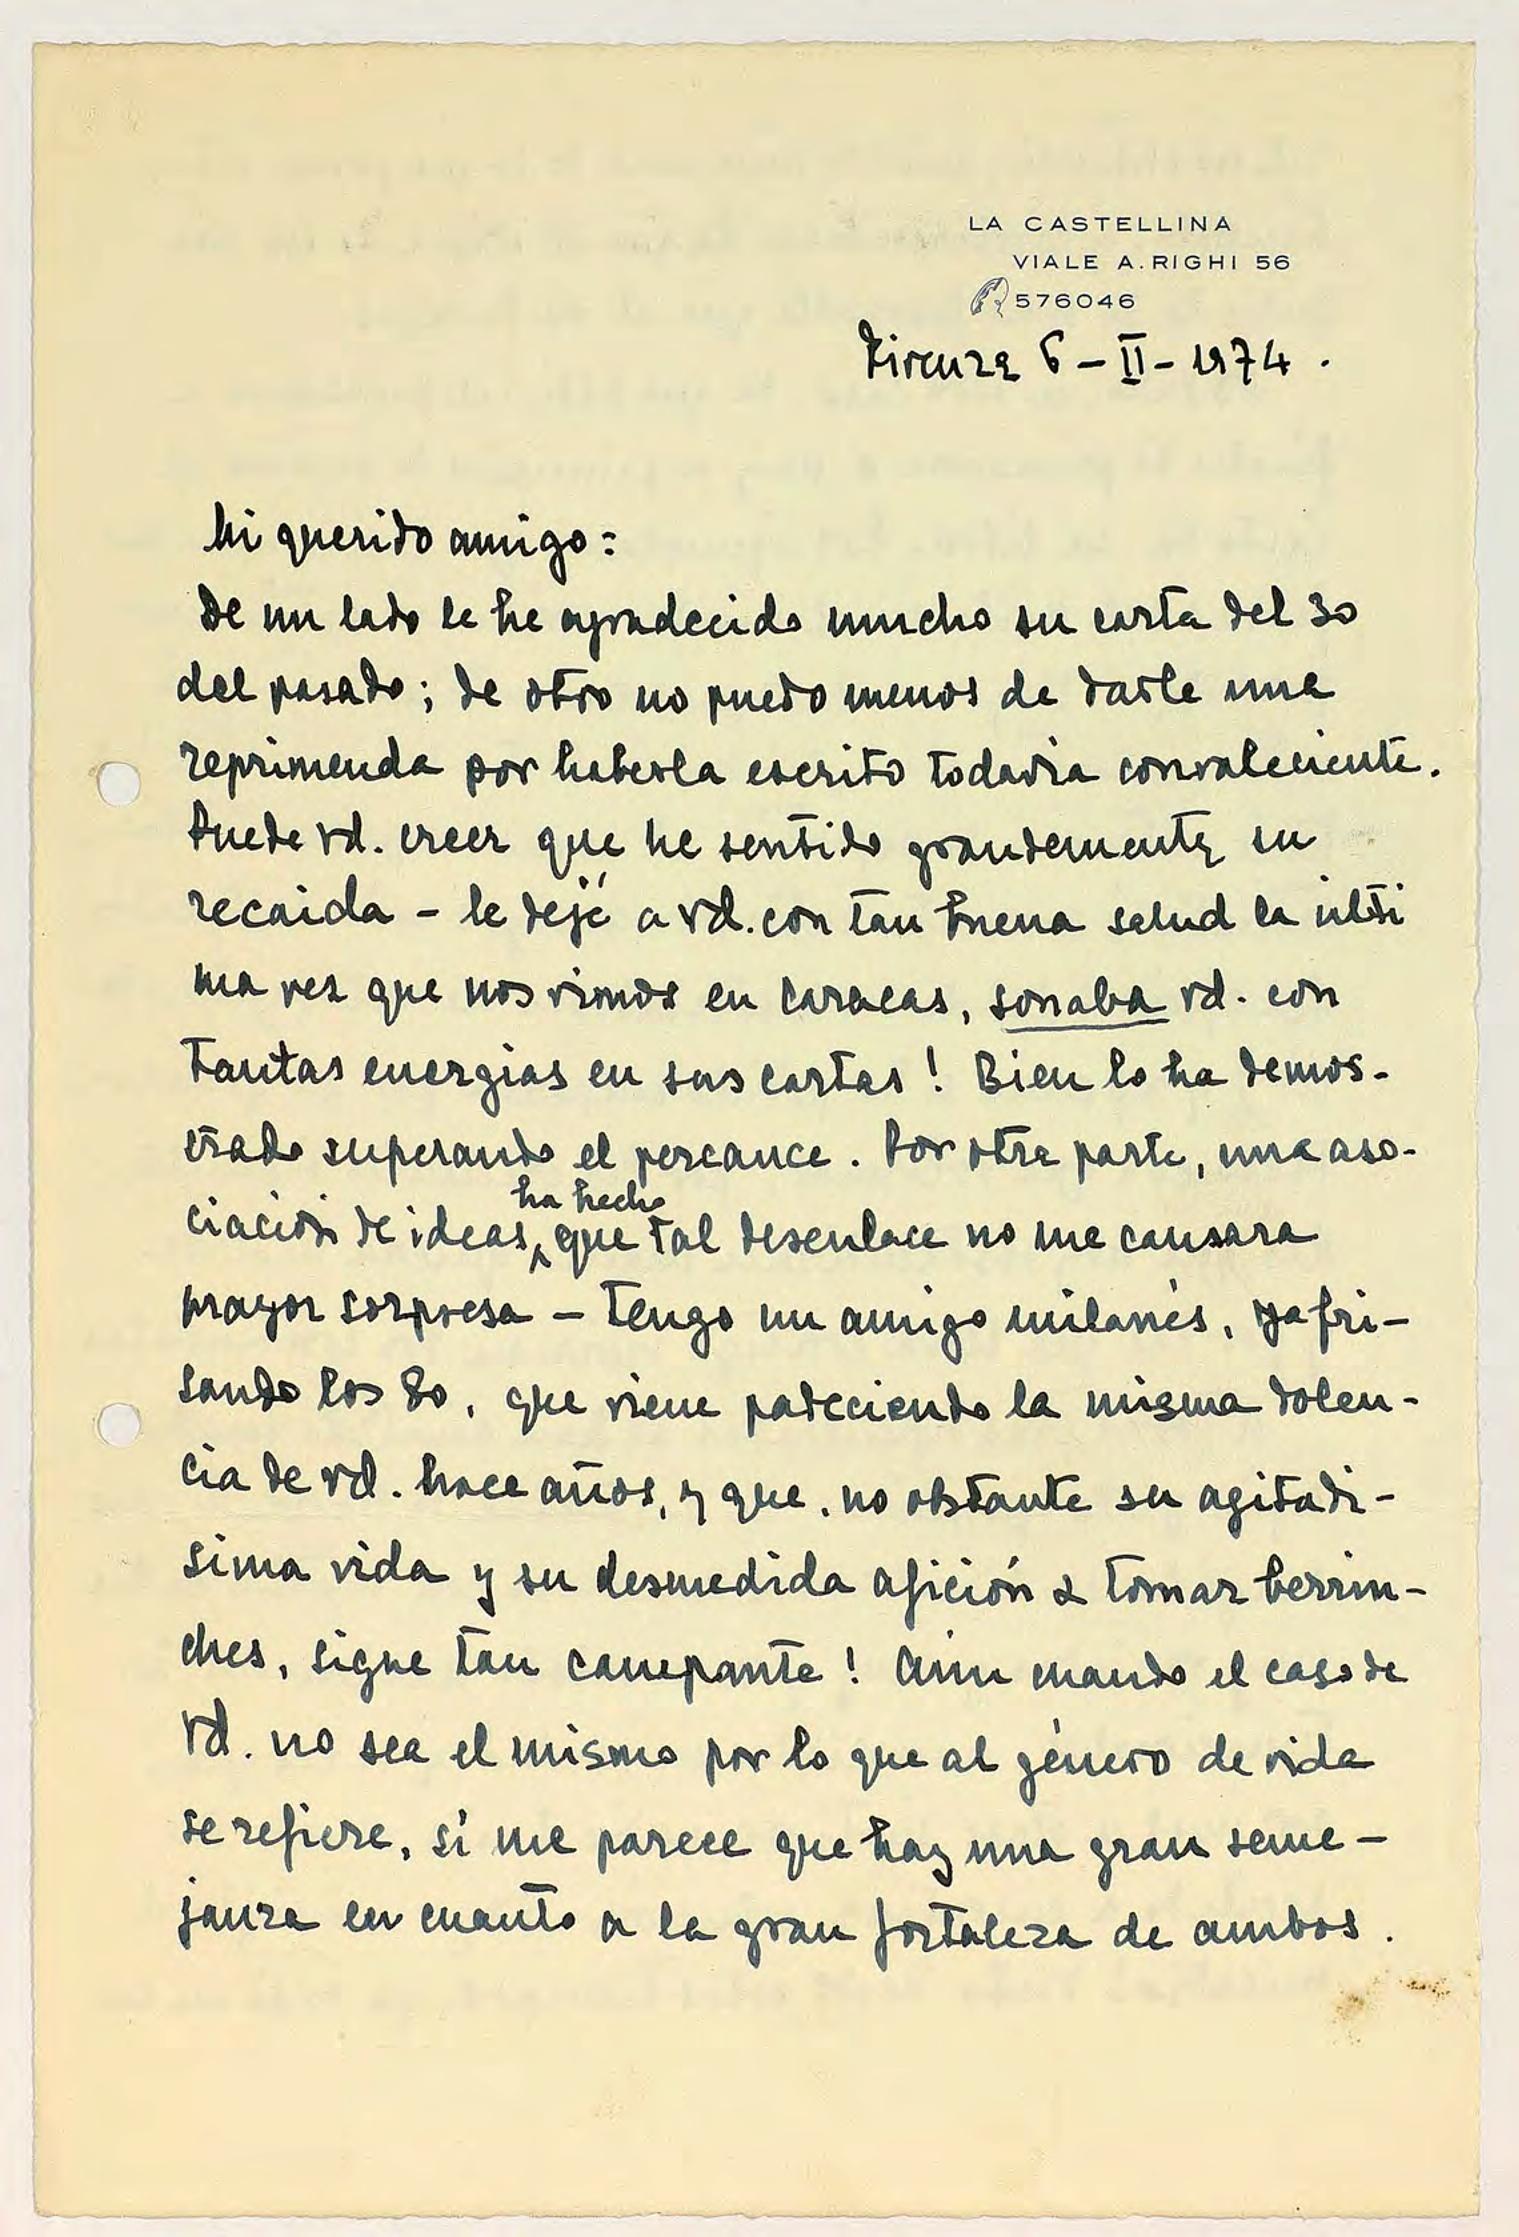 LA CASTELLINA
VIALE A. RIGHI 56
576046
Firenze 6 – II – 1974.
Mi querido amigo:
De un lado le he agradecido mucho su carta del 30
del pasado; de otro no puedo menos de darle una
reprimenda por haberla escrito todavía convaleciente.
Puede Vd. creer que he sentido grandemente su
recaida – le dejé a Vd. con tan buena salud la últi
ma vez que nos vimos en Caracas, sonaba Vd. con
tantas energias en sus cartas! Bien lo ha demos-
trado superando el percance. Por otra parte, una aso-
ha hecho
ciación de ideas, que tal desenlace no me causara
mayor sorpresa – tengo un amigo milanés, ya fri-
sando los 80, que viene padeciendo la misma dolen-
cia de Vd. hace años, y que, no obstante su agitadi-
sima vida y su desmedida afición a tomar berrin-
ches, sigue tan campante! Aún cuando el caso de
Vd. no sea el mismo por lo que al género de vida
se refiere, sí me parece que hay una gran seme-
janza en cuanto a la gran fortaleza de ambos.